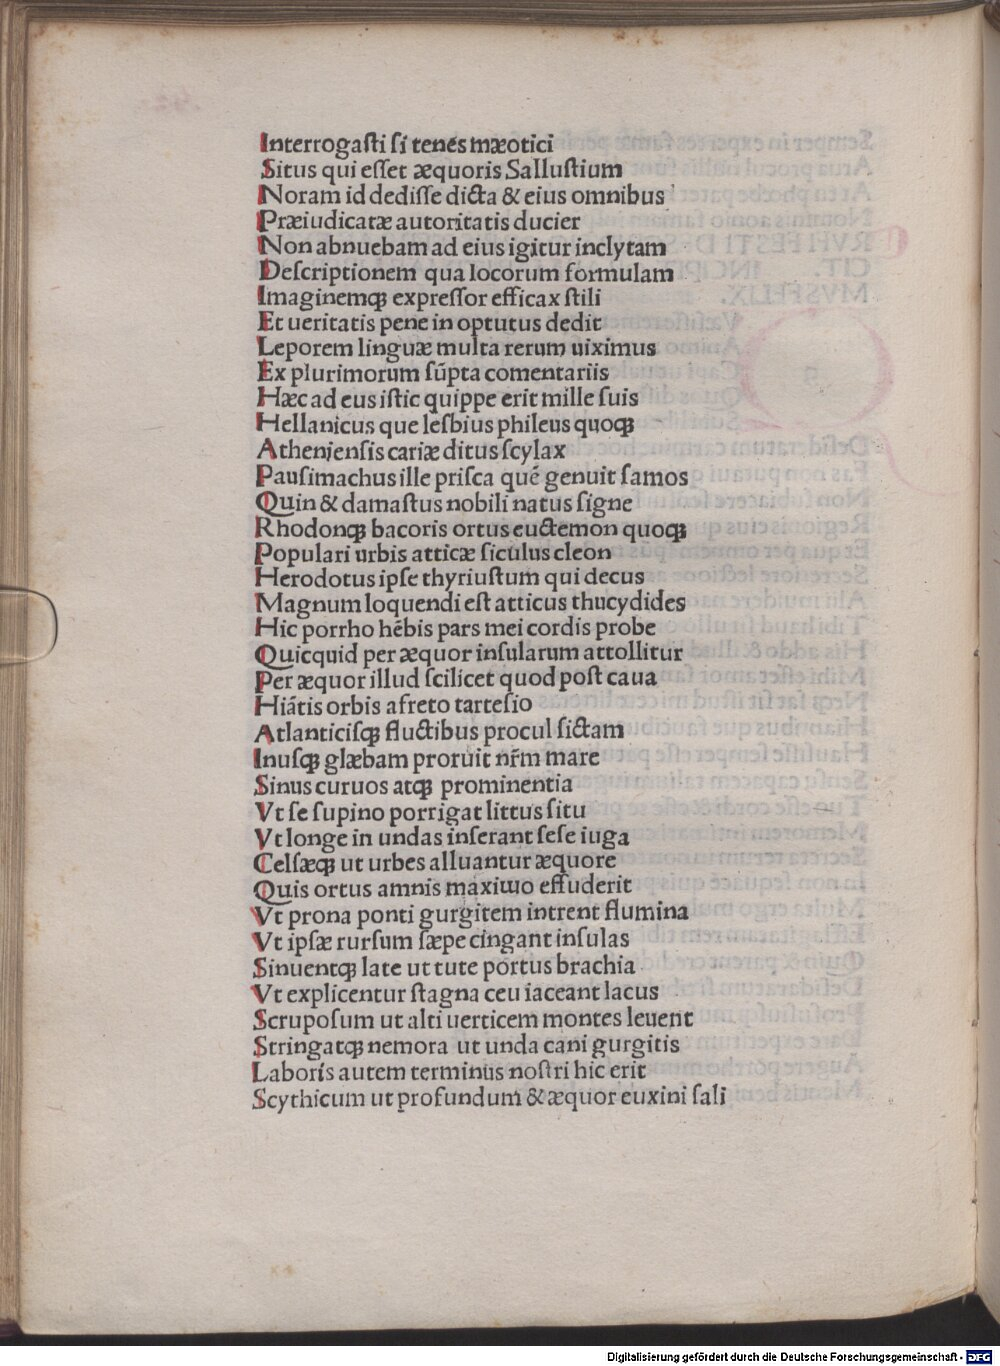 Interrogaſti ſi tenes mæotici
Situs qui eſſet æquoris Salluſtium
Noram id dediſſe dicta & eius omnibus
Præiudicatæ autoritatis ducier
Non abnuebam ad eius igitur inclytam
Deſcriptionem qua locorum formulam
Imaginemqꝫ expreſſor efficax ſtili
Et ueritatis pene in optutus dedit
Leporem linguæ multa rerum uiximus
Ex plurimorum ſūpta comentariis
Hæc ad eus iſtic quippe erit mille ſuis
Hellanicus que leſbius phileus quoqꝫ
Athenienſis cariæ ditus ſcylax
Pauſimachus ille priſca quē genuit ſamos
Quin & damaſtus nobili natus ſigne
Rhodonqꝫ bacoris ortus euctemon quoqꝫ
Populari urbis atticæ ſiculus cleon
Herodotus ipſe thyriuſtum qui decus
Magnum loquendi eſt atticus thucydides
Hic porrho hēbis pars mei cordis probe
Quicquid per æquor inſularum attollitur
Per æquor illud ſcilicet quod poſt caua
Hiātis orbis afreto tarteſio
Atlanticiſqꝫ fluctibus procul ſictam
Inuſqꝫ glæbam proruit nr̄m mare
Sinus curuos atqꝫ prominentia
Vt ſe ſupino porrigat littus ſitu
Vt longe in undas inſerant ſeſe iuga
Celſæqꝫ ut urbes alluantur æquore
Quis ortus amnis maximo effuderit
Vt prona ponti gurgitem intrent flumina
Vt ipſæ rurſum ſæpe cingant inſulas
Sinuentqꝫ late ut tute portus brachia
Vt explicentur ſtagna ceu iaceant lacus
Scrupoſum ut alti uerticem montes leuent
Stringatqꝫ nemora ut unda cani gurgitis
Laboris autem terminus noſtri hic erit
Scythicum ut profundum & æquor euxini ſali
Digitalisierung gefördert durch die Deutsche Forschungsgemeinschaft - DFG